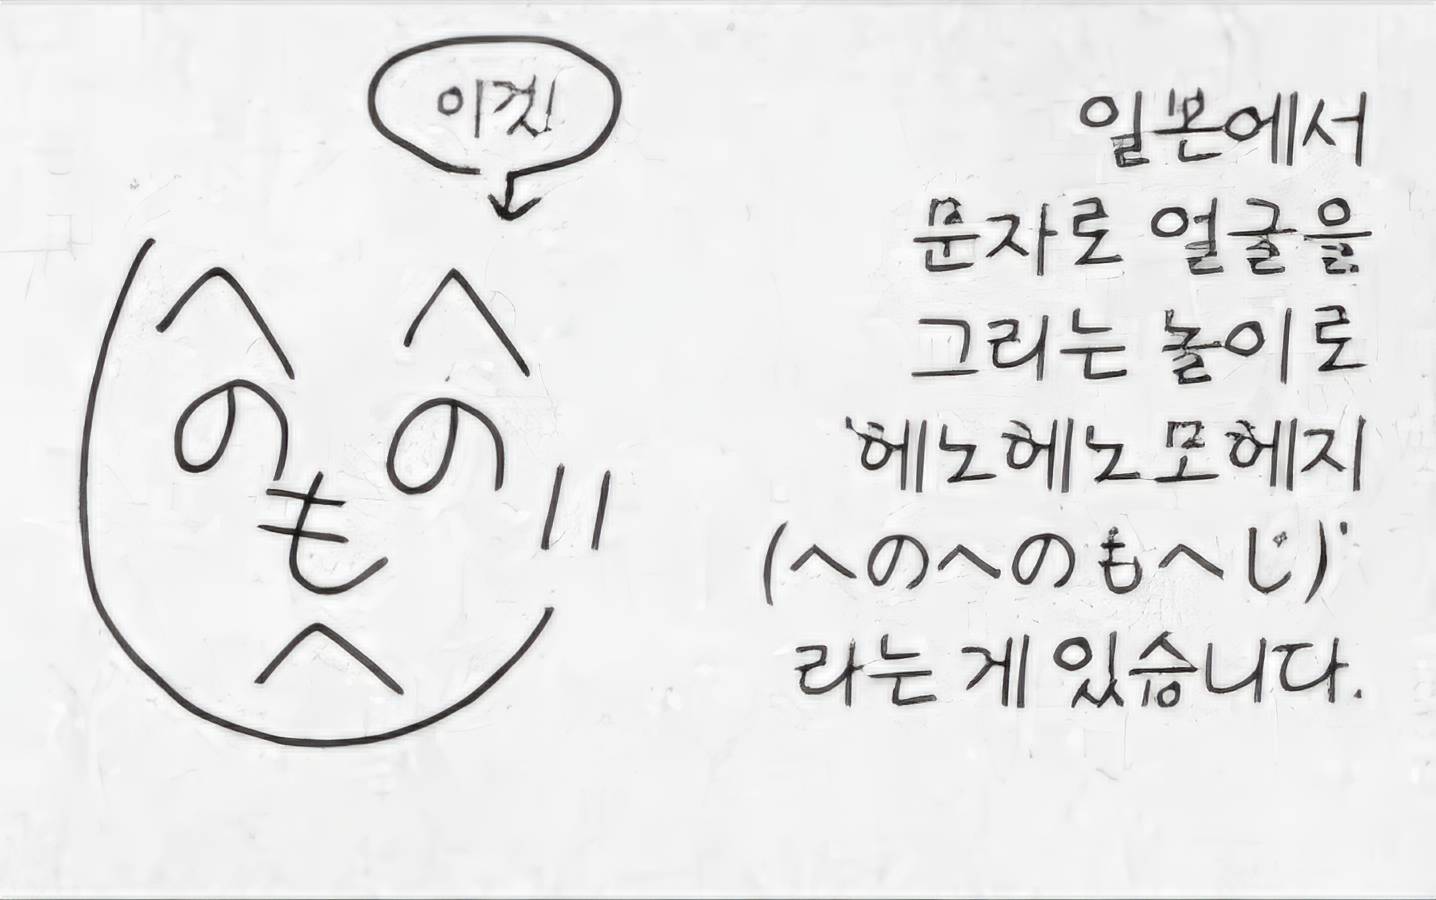 이것
일본에서
문자로 얼굴을
그리는 놀이로
'헤노헤노모헤지
(へのへのもへじ)'
라는 게 있습니다.
へ へ
の の
も
へ
じ